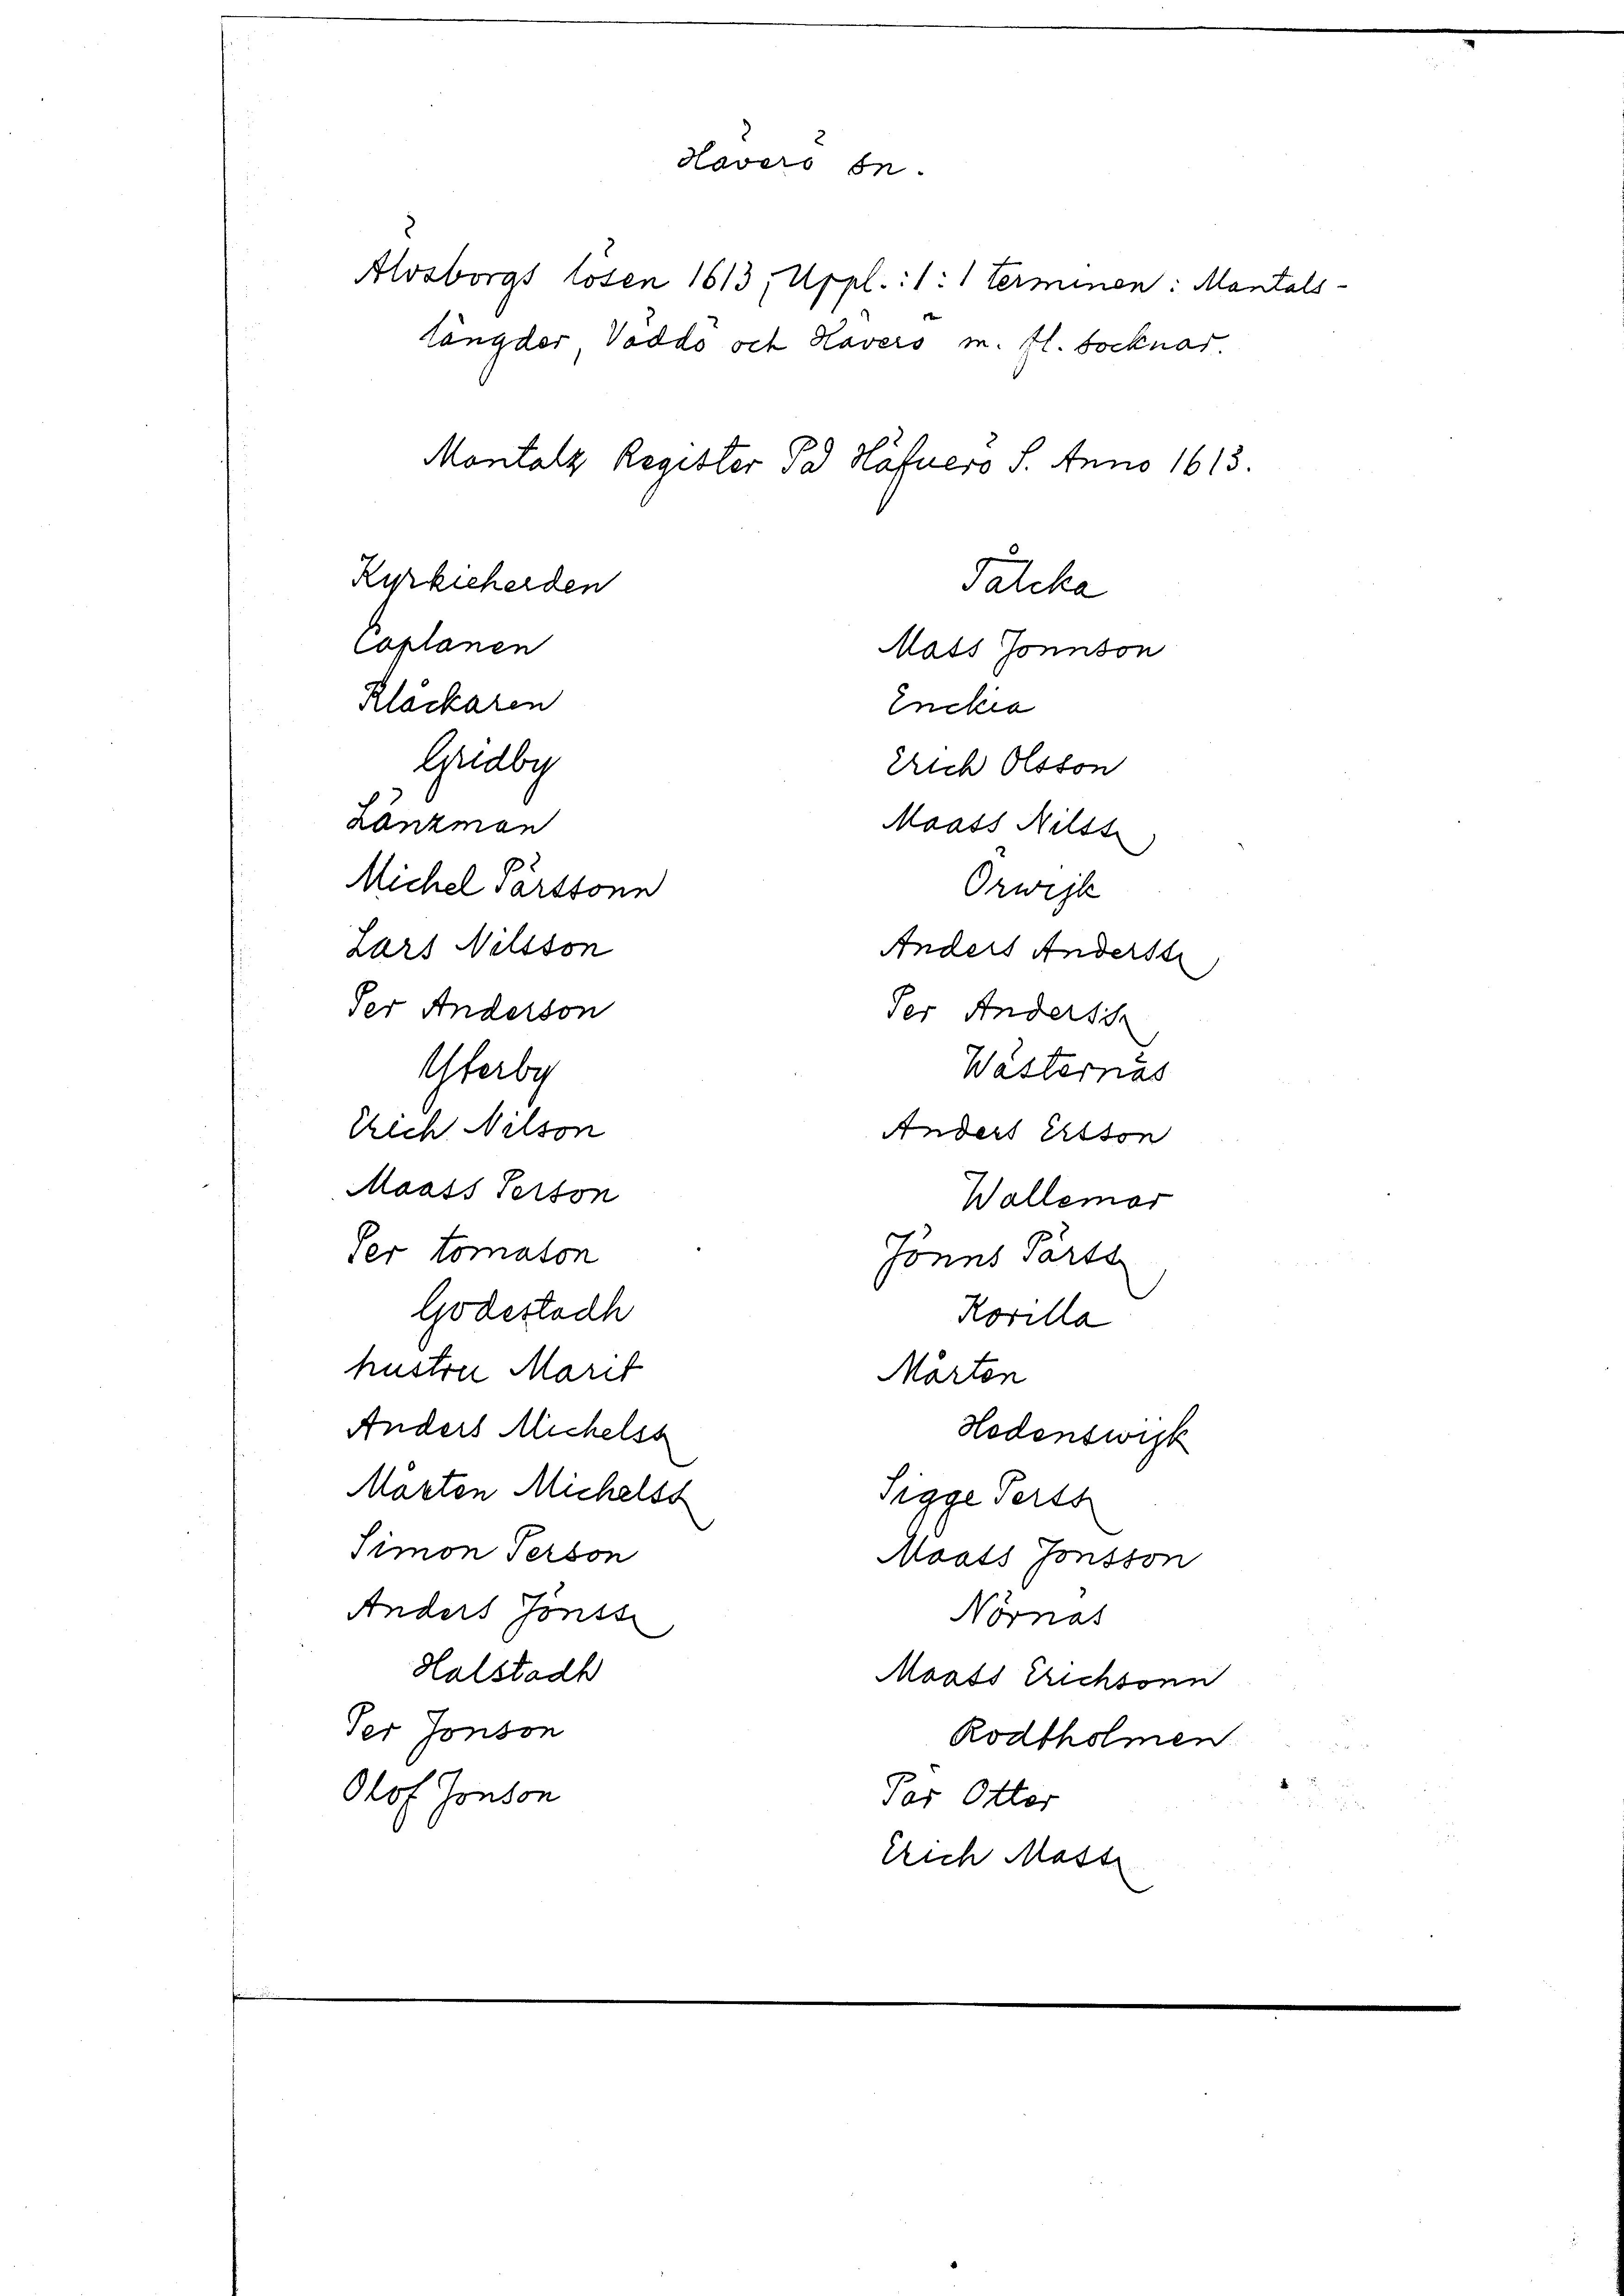 Häverö sn.
Älvsborgs lösen 1613, Uppl.:1:1 terminen: Mantals-
längder, Väddö och Häverö m. fl. socknar.
Montalz Register På Häfuerö S. Anno 1613.
Kyrkieherden
Caplanen
Kläckaren
Gridby
Länzman
Michel Pärssonn
Lars Nilsson
Per Anderson
Yterby
Erich Nilson
Maass Person
Per tomason
Godestadh
hustru Marit
Anders Michelss
Mårten Michelss
Simon Person
Anders Jönss
Halstadh
Per Jonson
Olof Jonson
Tålcka
Mass Jonnson
Enckia
Erich Olsson
Maass Nilss
Örwijk
Anders Anderss
Per Anderss
Wästernäs
Anders Ersson
Wallemar
Jönns Pärss
Korilla
Mårten
Hedenswijk
Sigge Perss
Maass Jonsson
Nörnäs
Maass Erichsonn
Rodsholmen
Pär Otter
Erich Mass